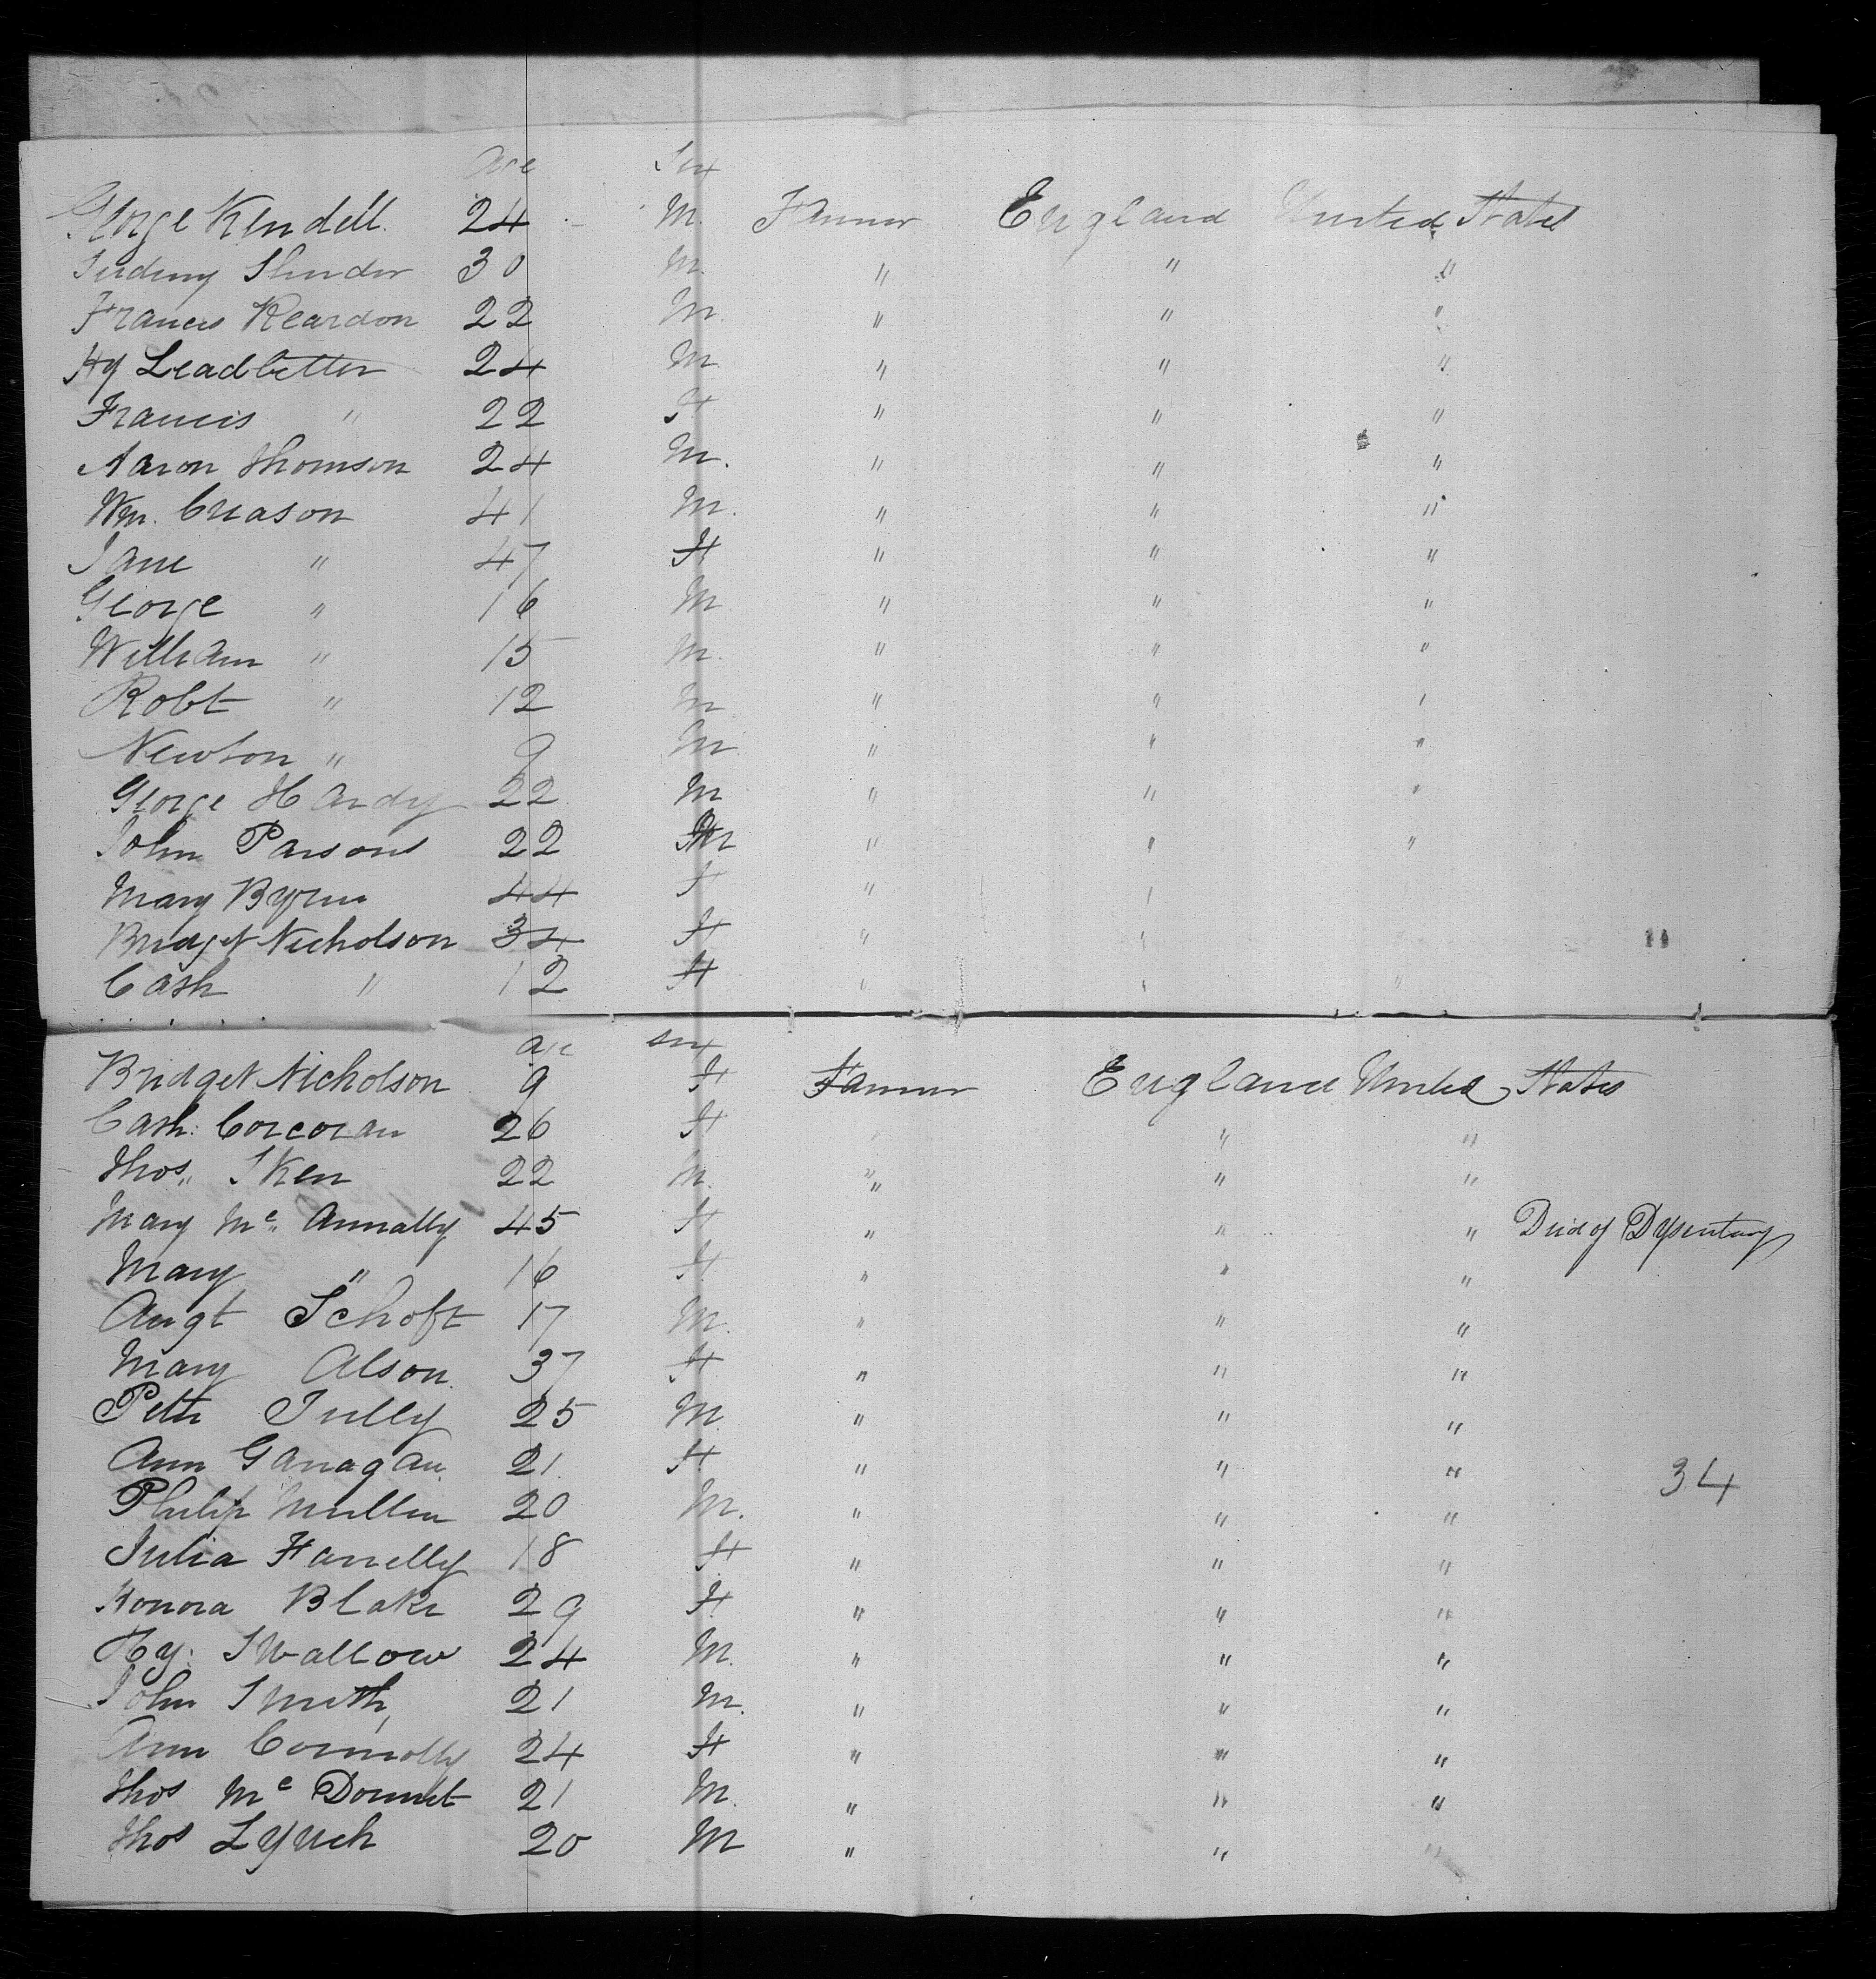 Age Sex
George Kendell. 24 M. Farmer England United States
30 M. " " "
Francis Reardon 22 M. " " "
Hy Leadbetter 24 M. " " "
Francis " 22 F " " "
Aaron Thomson 24 M. " " "
Wm. Creason 41 M. " " "
Jane " 47 F " " "
George " 16 M " " "
William " 15 M. " " "
Robt " 12 M " " "
Newton " 9 M " " "
George Hardy 22 M " " "
John Parsons 22 M " " "
Mary Byrne 44 F " "
Bridget Nicholson 34 F " "
Cath " 12 F " " "
age sex
Bridget Nicholson 9 F Farmer England United States
Cath: Corcoran 26 F " "
Thos,, Sken 22 M. " " "
Mary Mc,, Annally 45 F " " " Died of Dysentary
Mary " 16 F " " "
Augt Schoft 17 M. " " "
Mary Alson 37 F " " "
Peter Tully 25 M. " " "
Ann Ganagan 21. F. " " "
34
Philip Mullen 20 M. " " "
Julia Farrelly 18 F " " "
Honora Blake 29 F. " " "
Hy: Swallow 24 M. " " "
John Smith, 21 M. " " "
Ann Connolly 24 F " " "
Thos Mc Donnet 21 M. " " "
Thos Lynch 20 M " " "